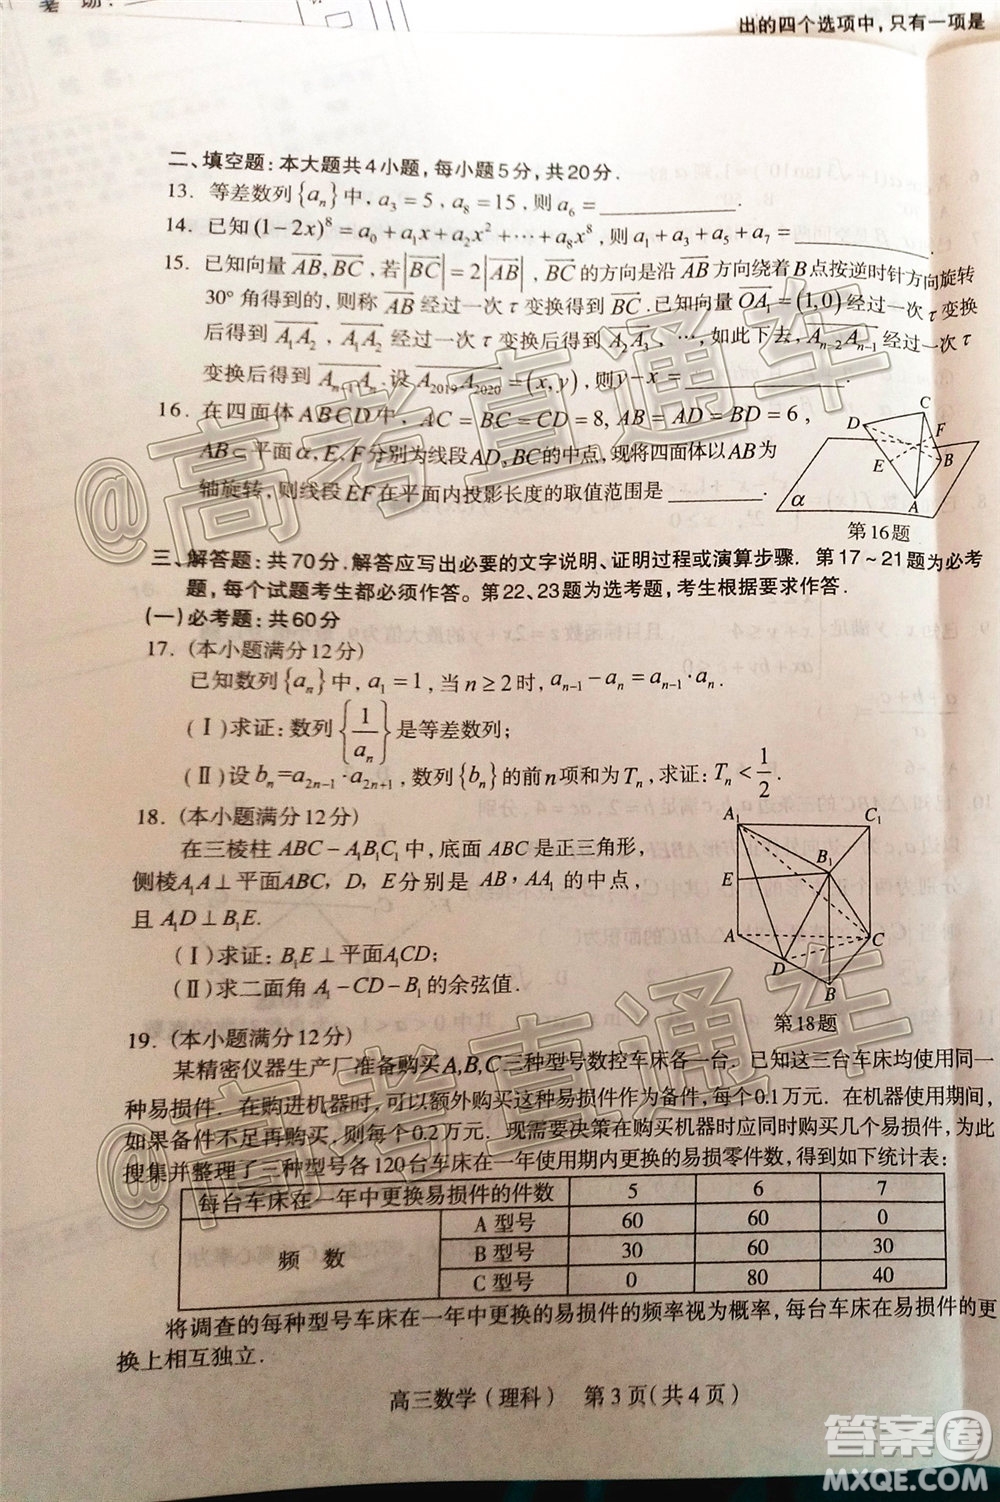 考 场:
出的四个选项中,只有一项是
二、填空题:本大题共4小题,每小题5分,共20分.
13. 等差数列{aₙ}中, a₃=5, a₈=15, 则 a₆=________.
14. 已知 (1-2x)⁸=a₀+a₁x+a₂x²+⋯+a₈x⁸, 则 a₁+a₃+a₅+a₇=________.
15. 已知向量 AB, BC, 若|BC|=2|AB|, BC的方向是沿 AB 方向绕着 B 点按逆时针方向旋转
30° 角得到的, 则称 AB 经过一次 τ 变换得到 BC. 已知向量 OA₁=(1,0) 经过一次 τ 变换
后得到 A₁A₂, A₁A₂ 经过一次 τ 变换后得到 A₂A₃, ⋯, 如此下去, Aₙ₋₂Aₙ₋₁ 经过一次 τ
变换后得到 Aₙ₋₁Aₙ. 设 A₂₀₁₉A₂₀₂₀=(x,y), 则 y-x=________.
16. 在四面体 ABCD 中, AC=BC=CD=8, AB=AD=BD=6,
AB⊂平面 α, E、F 分别为线段AD, BC的中点, 现将四面体以AB为
轴旋转, 则线段 EF 在平面内投影长度的取值范围是________.
D C F E B A α
第16题
三、解答题:共70分. 解答应写出必要的文字说明、证明过程或演算步骤. 第17~21题为必考
题, 每个试题考生都必须作答。第22、23题为选考题, 考生根据要求作答.
(一)必考题:共60分
17. (本小题满分12分)
已知数列{aₙ}中, a₁=1, 当 n≥2时, aₙ₋₁-aₙ=aₙ₋₁·aₙ.
(Ⅰ)求证:数列{1/aₙ}是等差数列;
(Ⅱ)设 bₙ=a₂ₙ₋₁·a₂ₙ₊₁, 数列{bₙ}的前n项和为Tₙ, 求证: Tₙ<1/2.
18. (本小题满分12分)
在三棱柱 ABC-A₁B₁C₁中, 底面 ABC 是正三角形,
侧棱A₁A⊥平面ABC, D, E分别是 AB, AA₁ 的中点,
且 A₁D⊥B₁E.
(Ⅰ)求证: B₁E⊥平面A₁CD;
(Ⅱ)求二面角 A₁-CD-B₁的余弦值.
A₁ C₁ B₁ E A C D B
第18题
19. (本小题满分12分)
某精密仪器生产厂准备购买A,B,C三种型号数控车床各一台. 已知这三台车床均使用同一
种易损件. 在购进机器时, 可以额外购买这种易损件作为备件, 每个0.1万元. 在机器使用期间,
如果备件不足再购买, 则每个0.2万元. 现需要决策在购买机器时应同时购买几个易损件, 为此
搜集并整理了三种型号各120台车床在一年使用期内更换的易损零件数, 得到如下统计表:
每台车床在一年中更换易损件的件数 5 6 7
频 数 A型号 60 60 0
B型号 30 60 30
C型号 0 80 40
将调查的每种型号车床在一年中更换的易损件的频率视为概率, 每台车床在易损件的更
换上相互独立.
高三数学(理科) 第3页(共4页)
@高考直通车
@高考直通车
答案圈
MXQE.COM